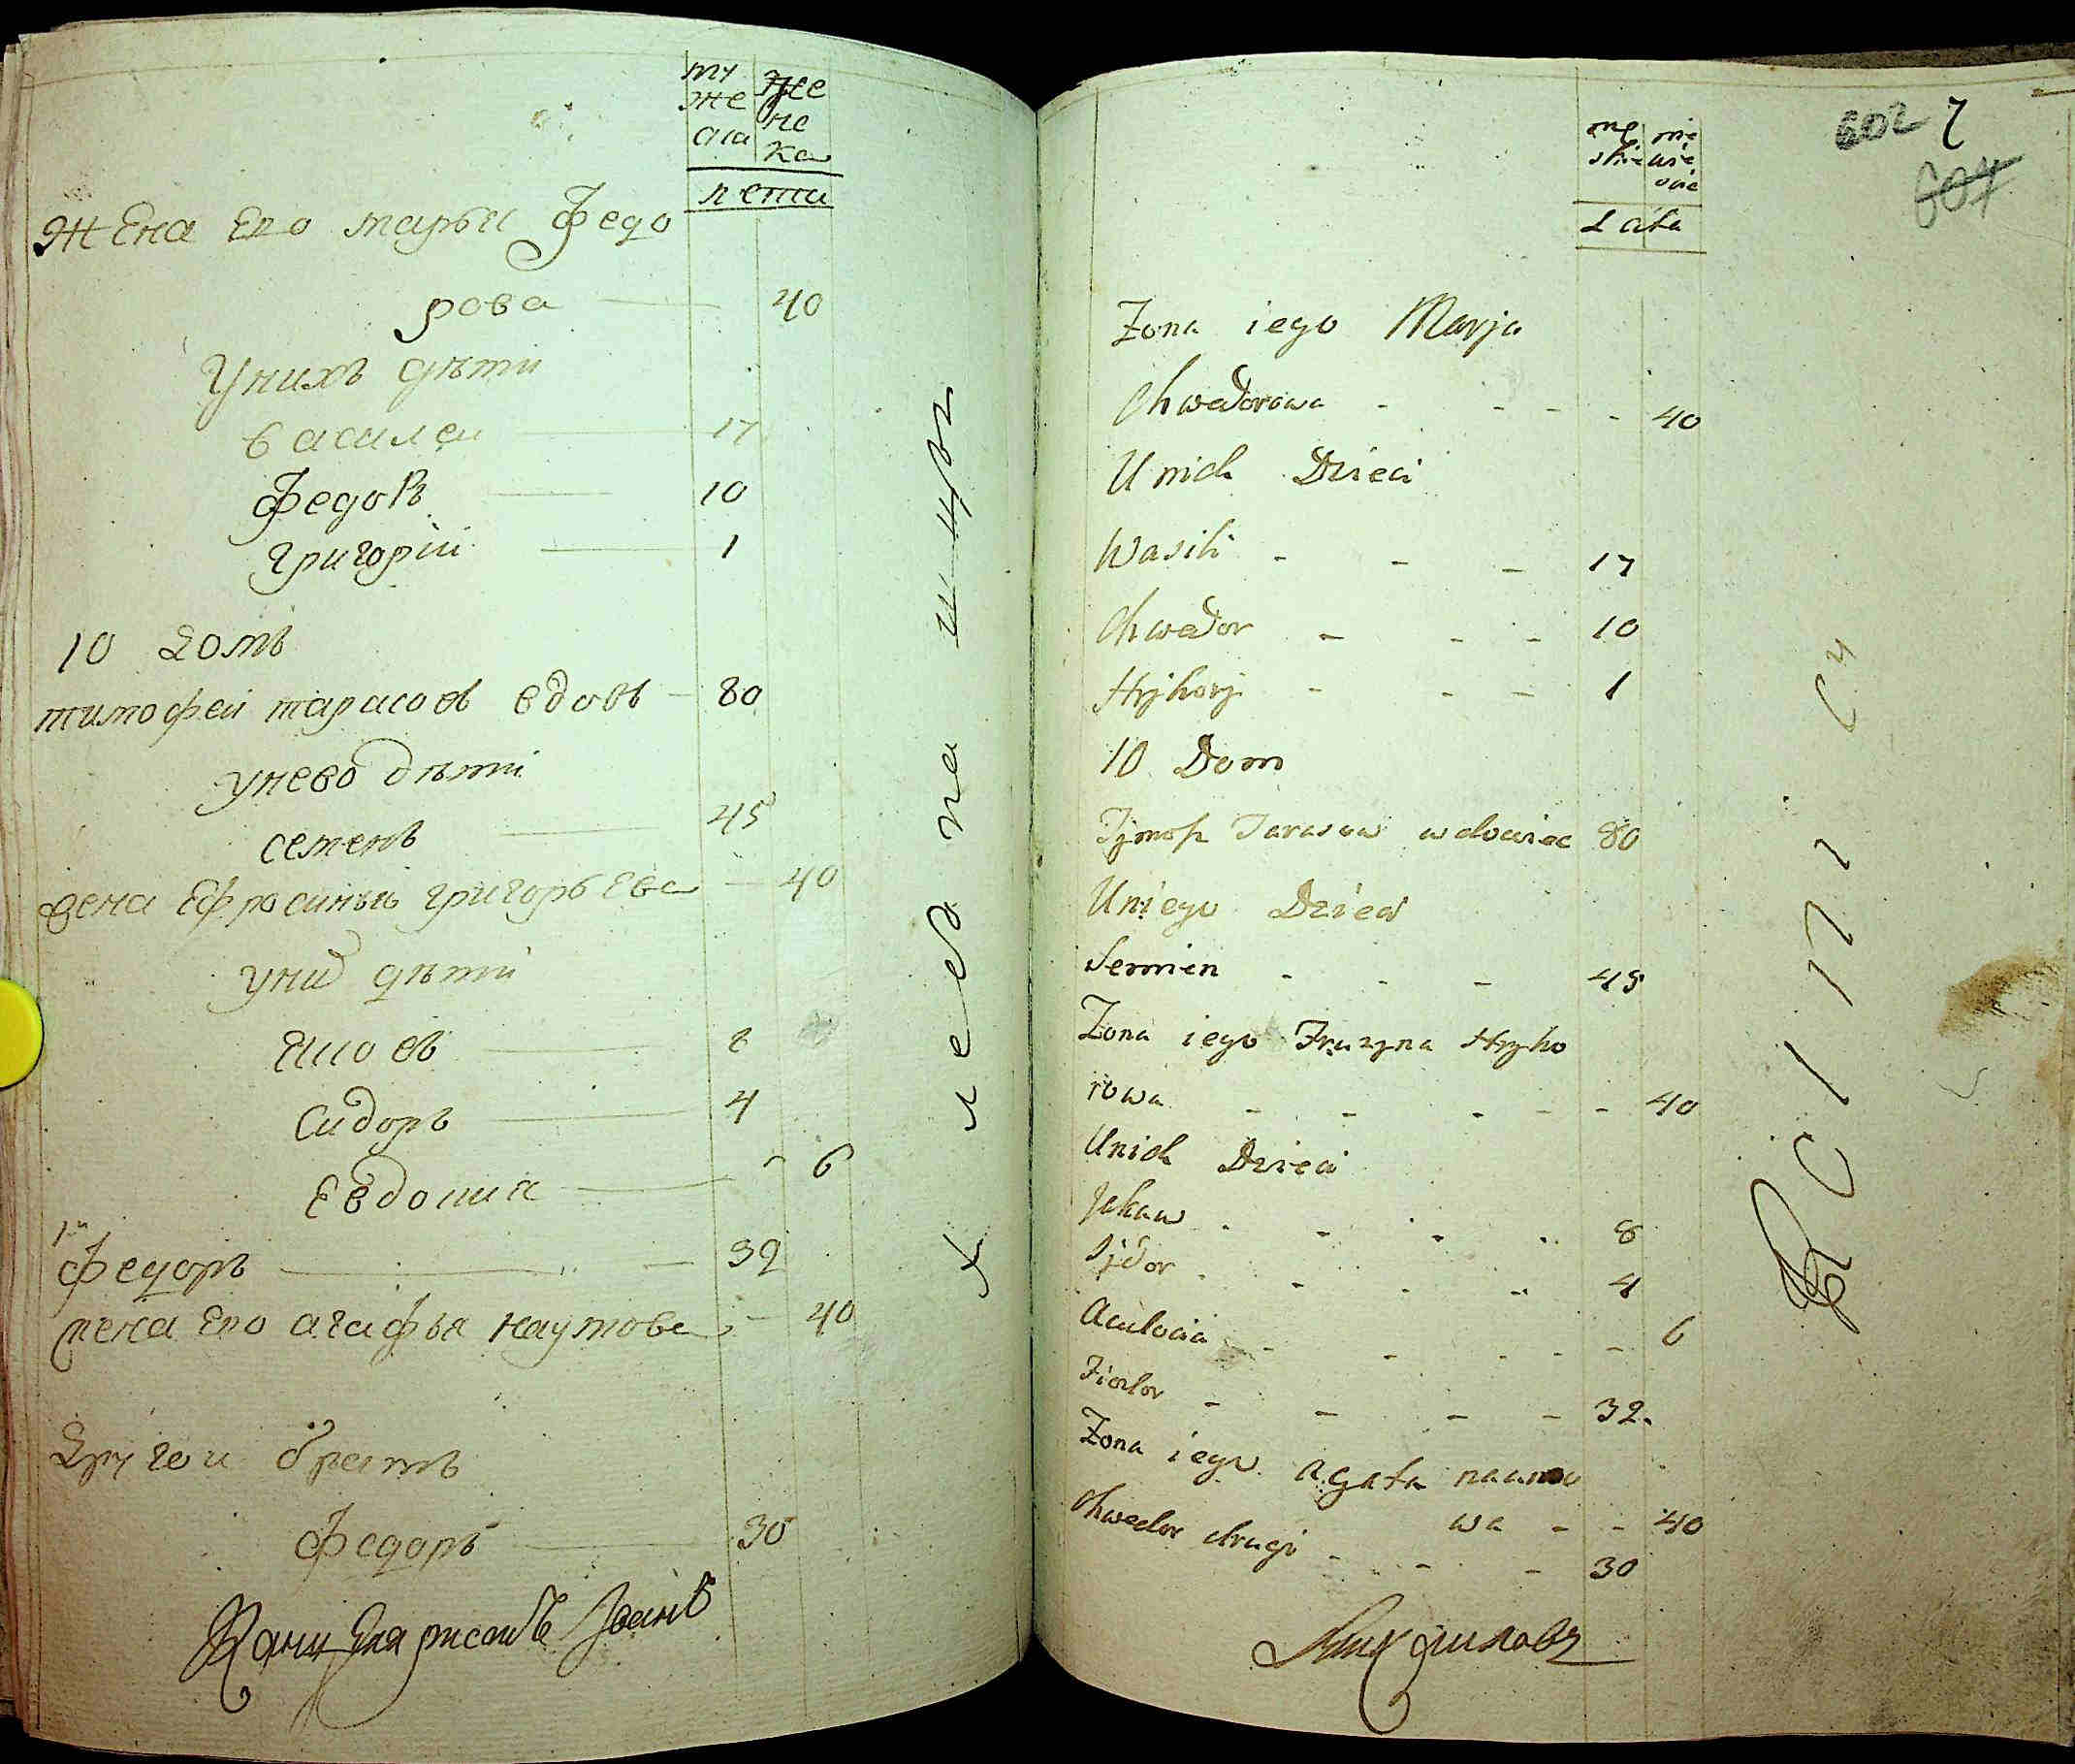 му же
же не
ска ка
лета
Жена его марья Федо
рова 40
У нихъ дѣти
василеи 17
Федоръ 10
григорiи 1
10 Домъ
тимофеи тарасовъ вдовъ 80
у нево дѣти
семенъ 45
жена Ефросинья григорьева 40
у них дѣти
Яковъ 8
Сидоръ 4
Евдокия 6
Федоръ 32
жена его агафья наумова 40
Другои братъ
Федоръ 30
602 7
604
Lata
Zona iego Marja
Chwedorowa 40
U nich Dzieci
Wasili 17
Chwedor 10
Hryhory 1
10 Dom
Tymofi Tarasow wdowiec 80
U niego Dzieci
Semien 45
Zona iego Fruzyna Hryho
rowa 40
U nich Dzieci
Jakaw 8
Sydor 4
6
Fiodor 32
Zona iego Agata naumo
wa 40
Chwedor drugi 30